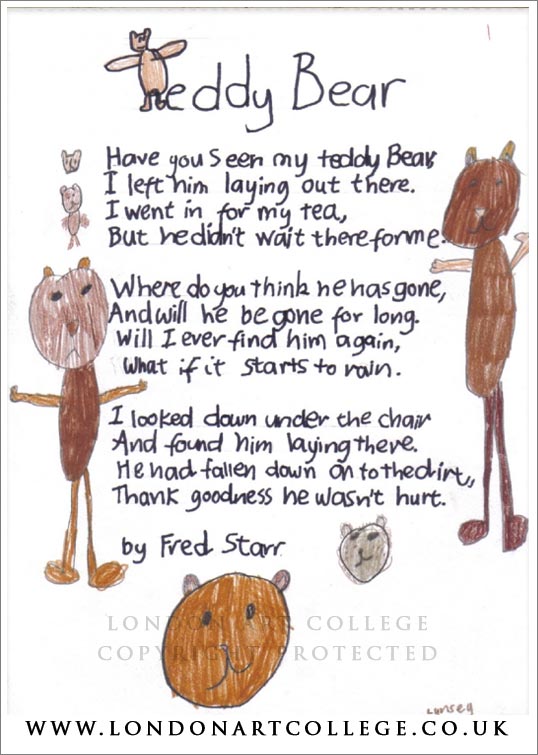 1
Teddy Bear
Have you Seen my teddy Bear,
I left him laying out there.
I went in for my tea,
But he didn't wait there for me.
Where do you think he has gone,
And will he be gone for long.
Will I ever find him again,
What if it starts to rain.
I looked down under the chair
And found him laying there.
He had fallen down on to the dirt,,
Thank goodness he wasn't hurt.
by Fred Starr
LONDON ART COLLEGE
COPYRIGHT PROTECTED
WWW.LONDONARTCOLLEGE.CO.UK